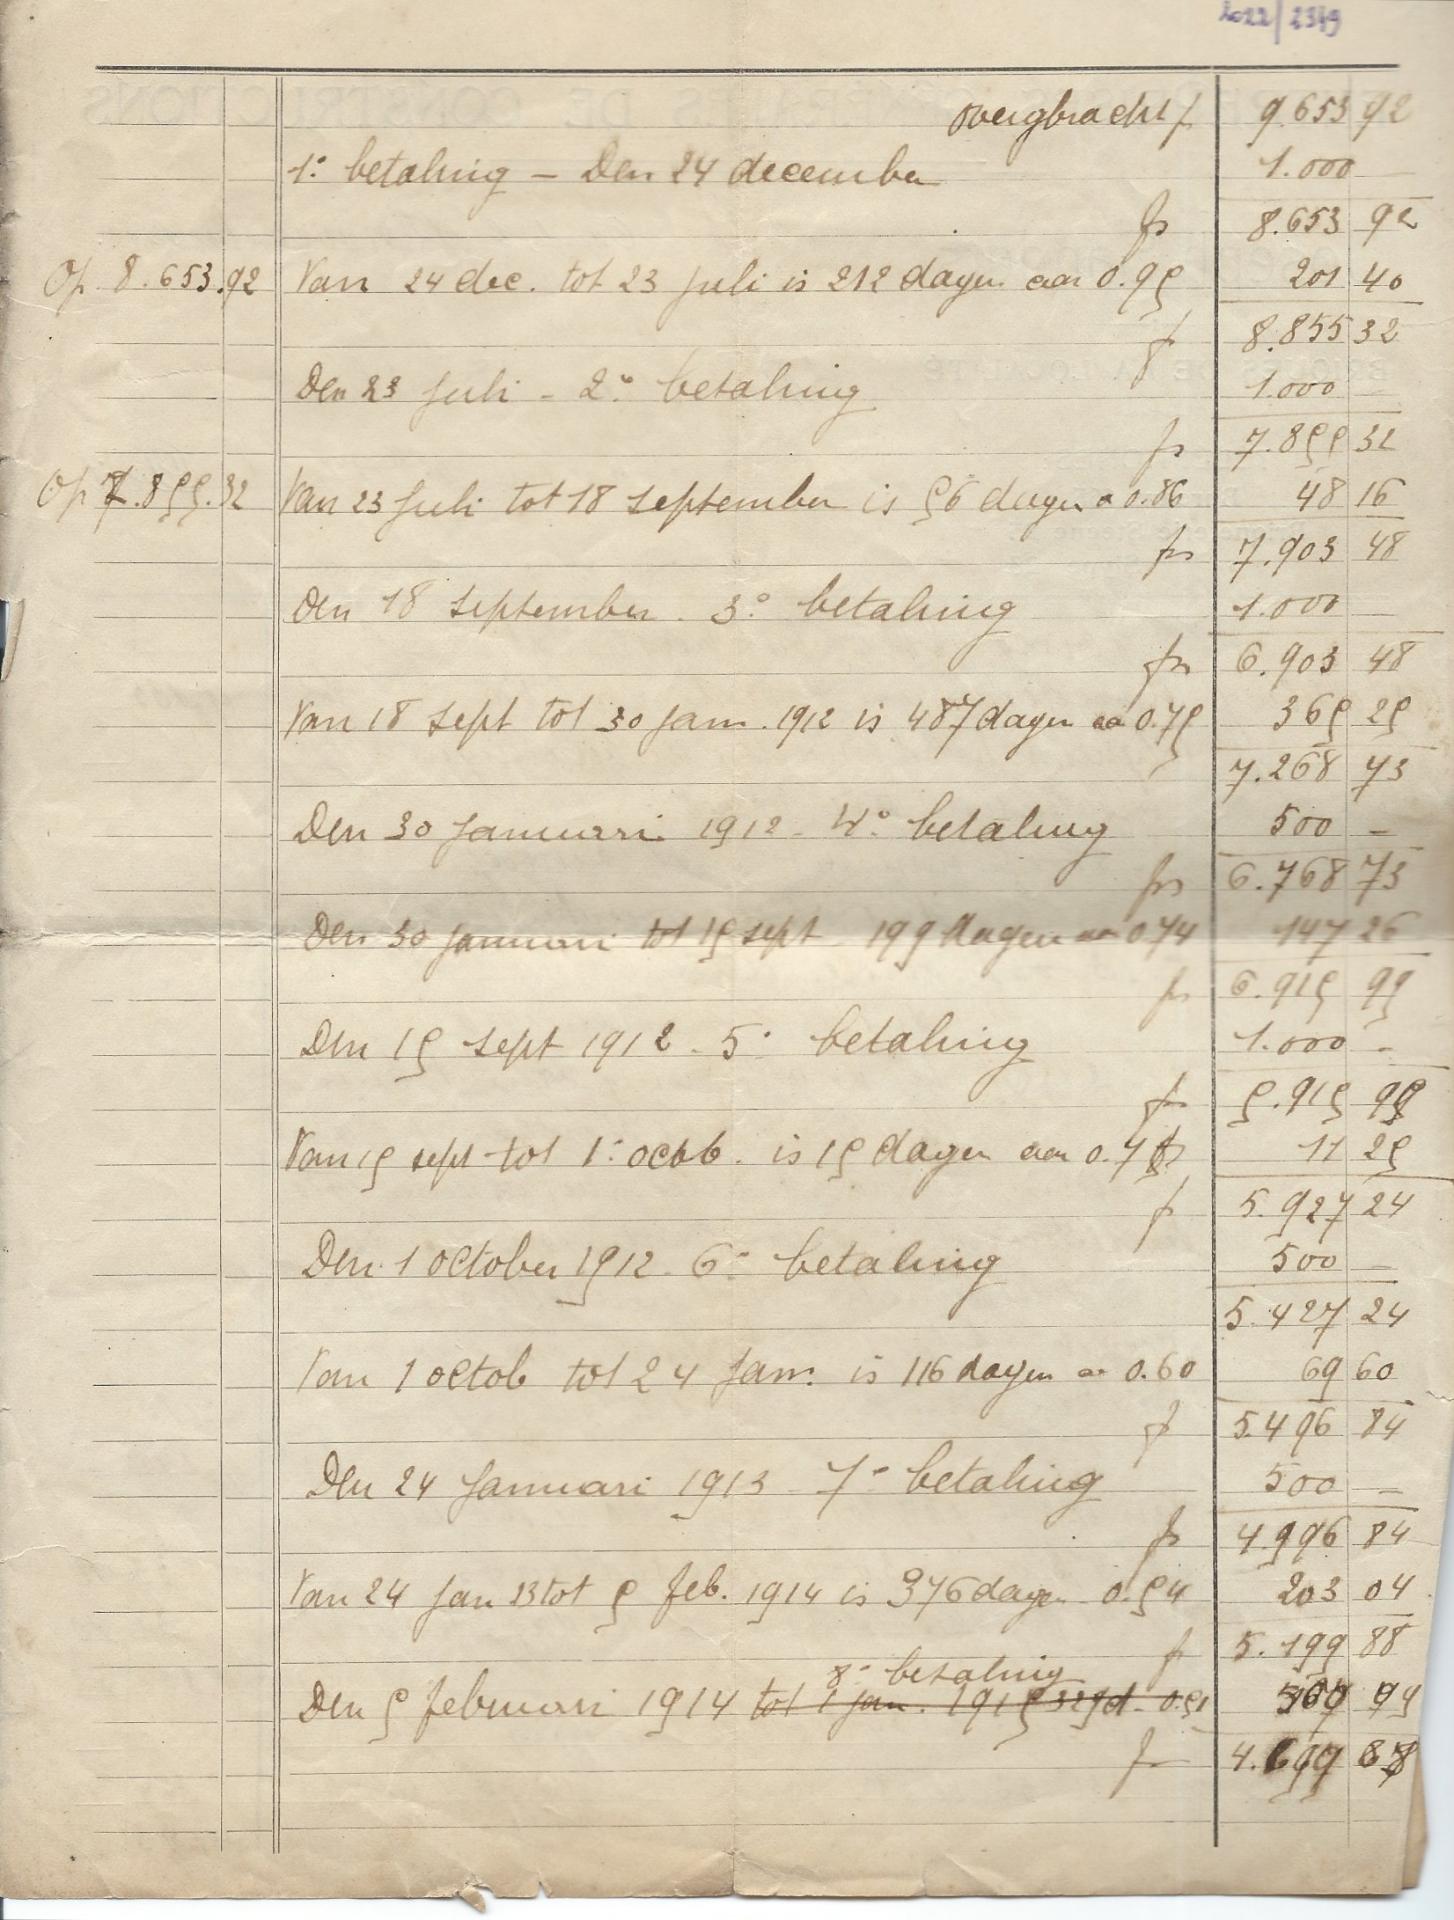 2022/2349
overgbracht f 9.653 92
1° betaling – Den 24 december 1.000 —
frs 8.653 92
Op 8.653.92 Van 24 dec. tot 23 Juli is 212 dagen aan 0.95 201 40
fr 8.855 32
Den 23 Juli - 2° betaling 1.000 —
frs 7.855 32
Op 7.855.32 Van 23 Juli tot 18 september is 56 dagen a 0.86 48 16
frs 7.903 48
Den 18 september. 3° betaling 1.000 —
frs 6.903 48
Van 18 sept tot 30 jan. 1912 is 487 dagen aa 0.75 365 25
7.268 73
Den 30 Januari 1912 - 4° betaling 500 —
frs 6.768 73
Den 30 januari tot 15 sept 199 dagen aan 0.74 147 26
frs 6.915 99
Den 15 sept 1912 - 5° betaling 1.000 -
fr 5.915 99
Van 15 sept tot 1° octob. is 15 dagen aan 0.75 11 25
fr 5.927 24
Den 1 October 1912 - 6° betaling 500 —
5.427 24
Van 1 octob tot 24 Jan. is 116 dagen aa 0.60 69 60
fr 5.496 84
Den 24 Januari 1913 - 7° betaling 500 —
frs 4.996 84
Van 24 Jan 13 tot 5 feb. 1914 is 376 dagen 0.54 203 04
fr 5.199 88
8° betaling
Den 5 februari 1914 tot 1 jan. 1915 329 d. 0.51
fr 4.699 88